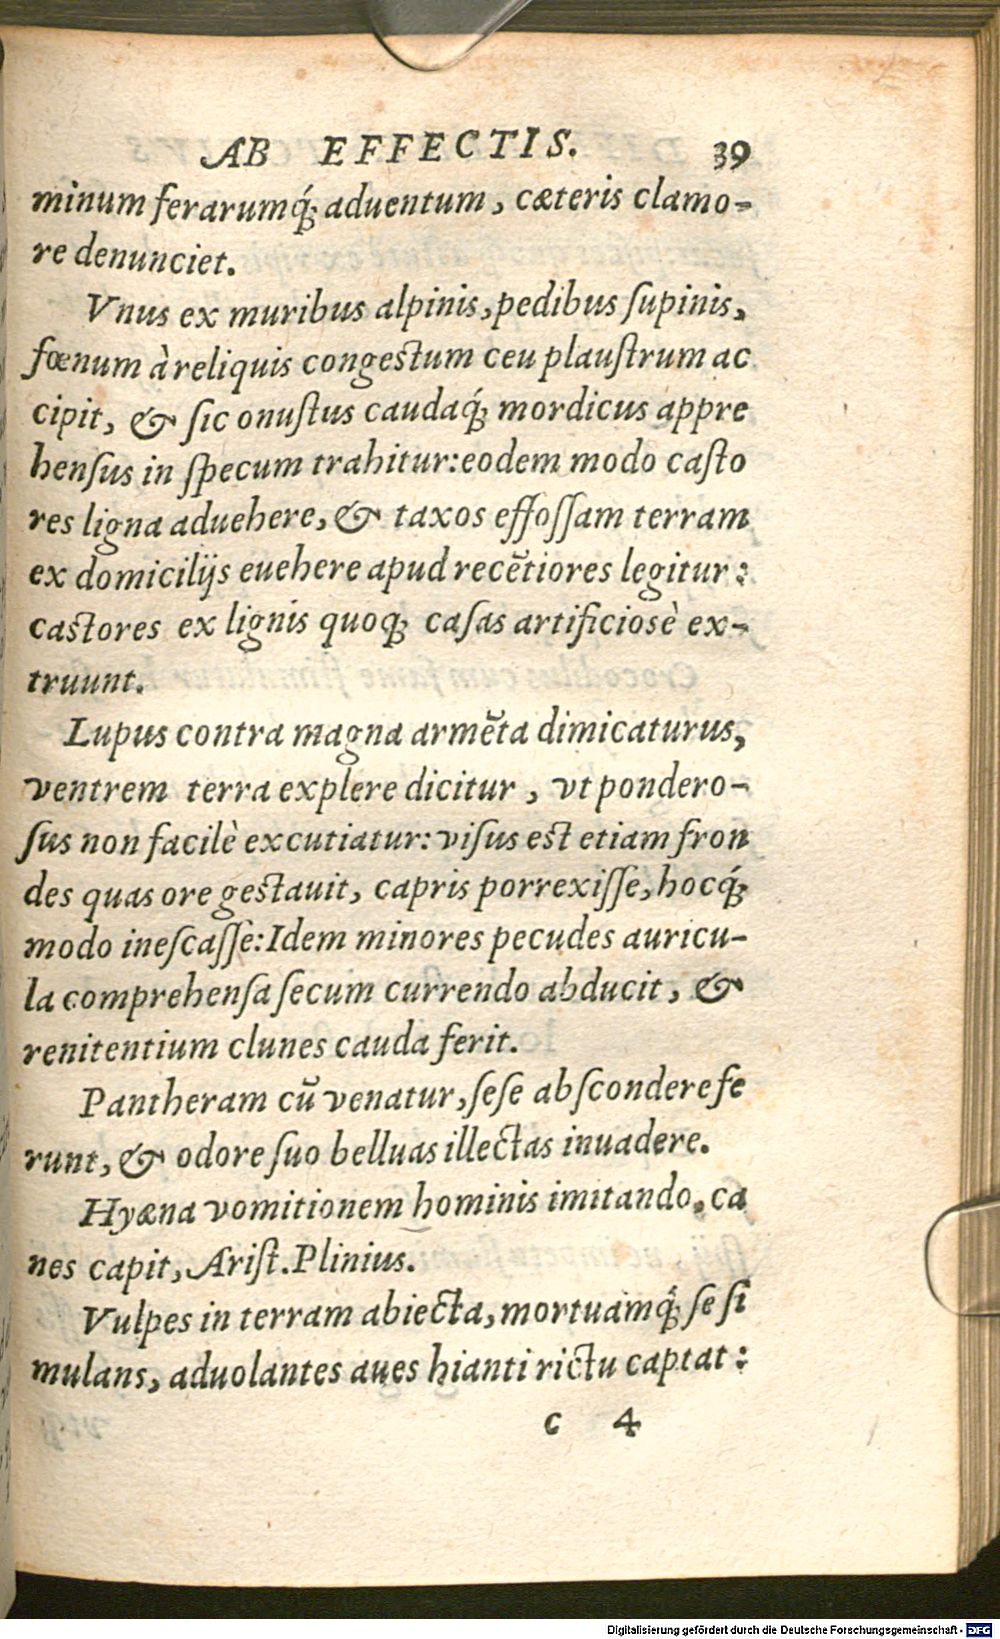 AB EFFECTIS. 39
minum ferarumq́; aduentum, cæteris clamo-
re denunciet.
Vnus ex muribus alpinis, pedibus ſupinis,
fœnum à reliquis congeſtum ceu plauſtrum ac
cipit, & ſic onuſtus caudaq́; mordicus appre
henſus in ſpecum trahitur: eodem modo caſto
res ligna aduehere, & taxos effoſſam terram
ex domicilijs euehere apud recētiores legitur:
caſtores ex lignis quoq; caſas artificioſè ex-
truunt.
Lupus contra magna armēta dimicaturus,
ventrem terra explere dicitur, vt pondero-
ſus non facilè excutiatur: viſus eſt etiam fron
des quas ore geſtauit, capris porrexiſſe, hocq́;
modo ineſcaſſè: Idem minores pecudes auricu-
la comprehenſa ſecum currendo abducit, &
renitentium clunes cauda ferit.
Pantheram cū venatur, ſeſe abſcondere fe
runt, & odore ſuo belluas illectas inuadere.
Hyæna vomitionem hominis imitando, ca
nes capit, Ariſt. Plinius.
Vulpes in terram abiecta, mortuamq́; ſe ſi
mulans, aduolantes aues hianti rictu captat:
c 4
Digitalisierung gefördert durch die Deutsche Forschungsgemeinschaft - DFG